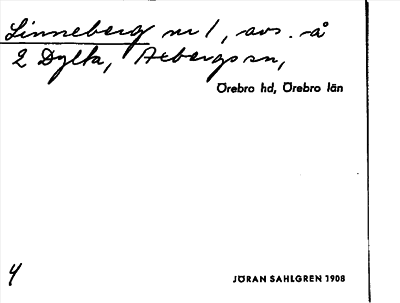 Linneberg nr 1, avs. å
2 Dylta, Axbergs sn,
Örebro hd, Örebro län
4
JÖRAN SAHLGREN 1908